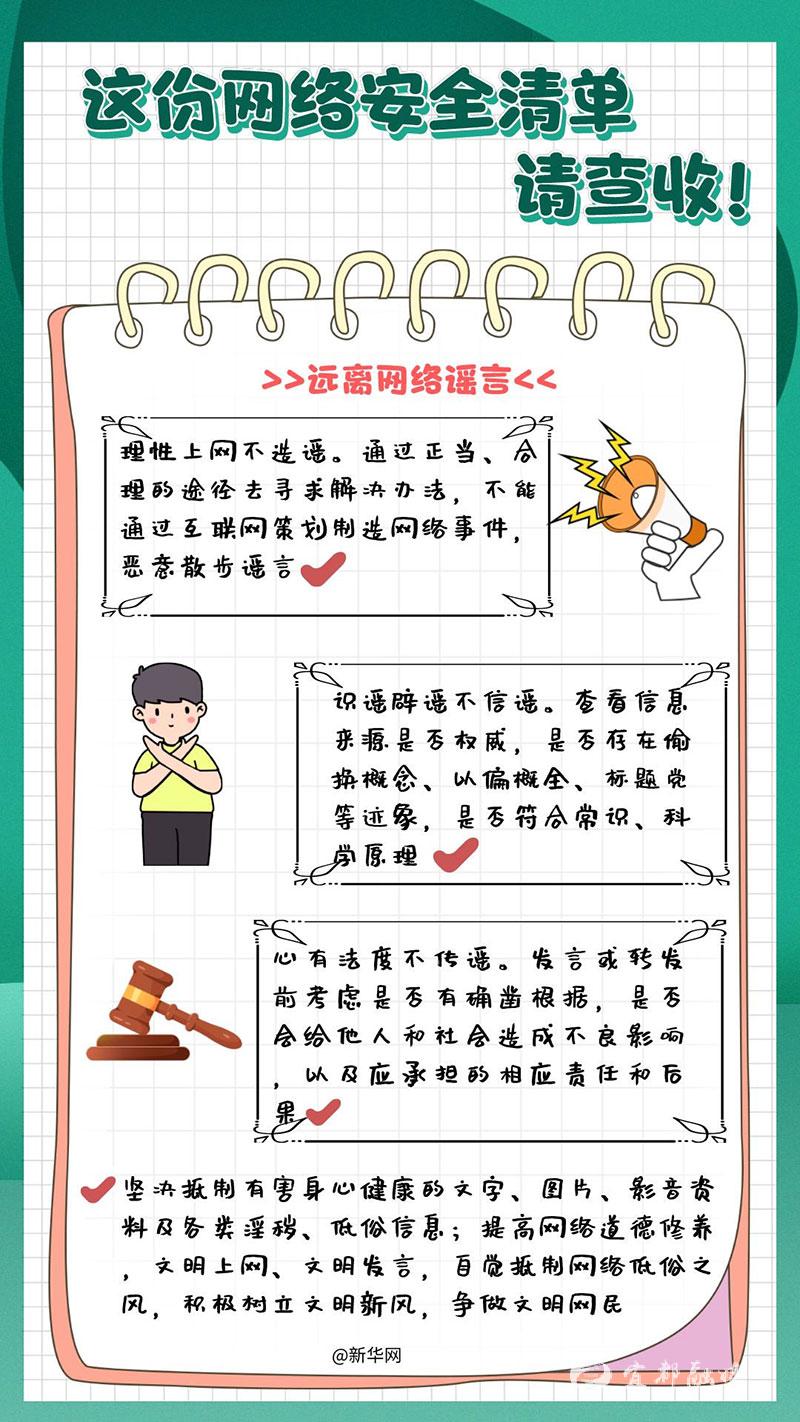 这份网络安全清单
请查收!
>>远离网络谣言<<
理性上网不造谣。通过正当、合
理的途径去寻求解决办法，不能
通过互联网策划制造网络事件，
恶意散步谣言
识谣辟谣不信谣。查看信息
来源是否权威，是否存在偷
换概念、以偏概全、标题党
等迹象，是否符合常识、科
学原理
心有法度不传谣。发言或转发
前考虑是否有确凿根据，是否
会给他人和社会造成不良影响
，以及应承担的相应责任和后
果
坚决抵制有害身心健康的文字、图片、影音资
料及各类淫秽、低俗信息；提高网络道德修养
，文明上网、文明发言，自觉抵制网络低俗之
风，积极树立文明新风，争做文明网民
@新华网
宜都融